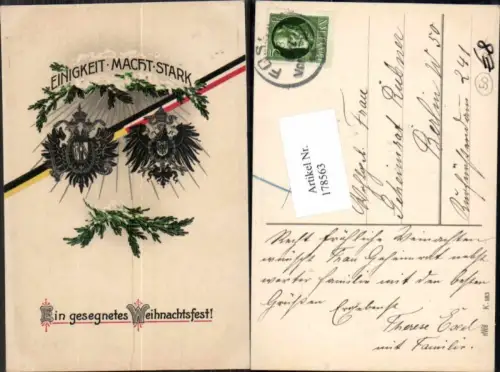 EINIGKEIT · MACHT · STARK
Ein gesegnetes Weihnachtsfest!
Artikel Nr.
178563
58
Frau
Geheimrat Rübner
Berlin W 50
Kurfürstendamm 241
Recht fröhliche Weinachten
wünscht Frau Geheimrat nebst
werter Familie mit den besten
Grüßen Ergebenst
Therese
mit Familie.
K. 183